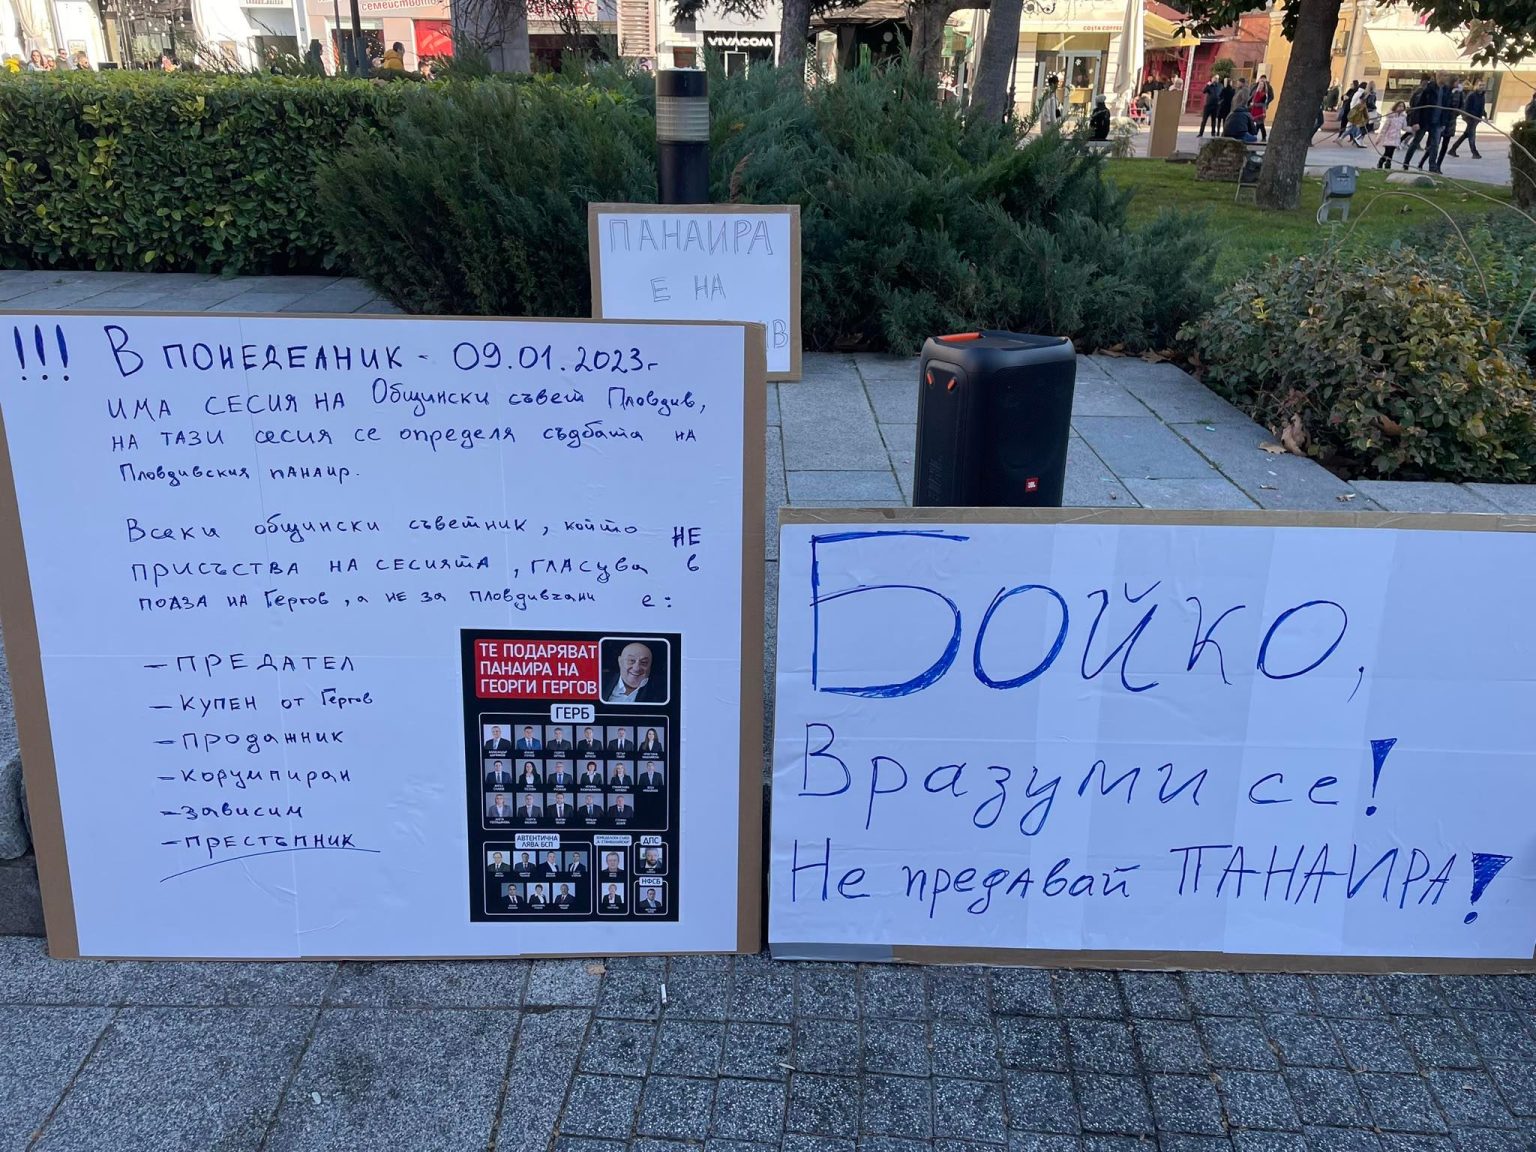 семейство
VIVACOM
COSTA COFFEE
ПАНАИРА
Е НА
!!! В ПОНЕДЕЛНИК - 09.01.2023г
ИМА СЕСИЯ НА Общински съвет Пловдив,
НА ТАЗИ сесия се определя съдбата НА
Пловдивския ПАНАИР.
Всеки общински съветник, който НЕ
ПРИСЪСТВА НА СЕСИЯТА, ГЛАСУВА в
ПОЛЗА НА Гергов, а НЕ ЗА Пловдивчани е:
- ПРЕДАТЕЛ
- КУПЕН от Гергов
- Продажник
- Корумпиран
- Зависим
- ПРЕСТЪПНИК
ТЕ ПОДАРЯВАТ
ПАНАИРА НА
ГЕОРГИ ГЕРГОВ
ГЕРБ
АВТЕНТИЧНА
ЛЯВА БСП
ДПС
НФСБ
JBL
БОЙКО,
Вразуми се!
Не предавай ПАНАИРА!